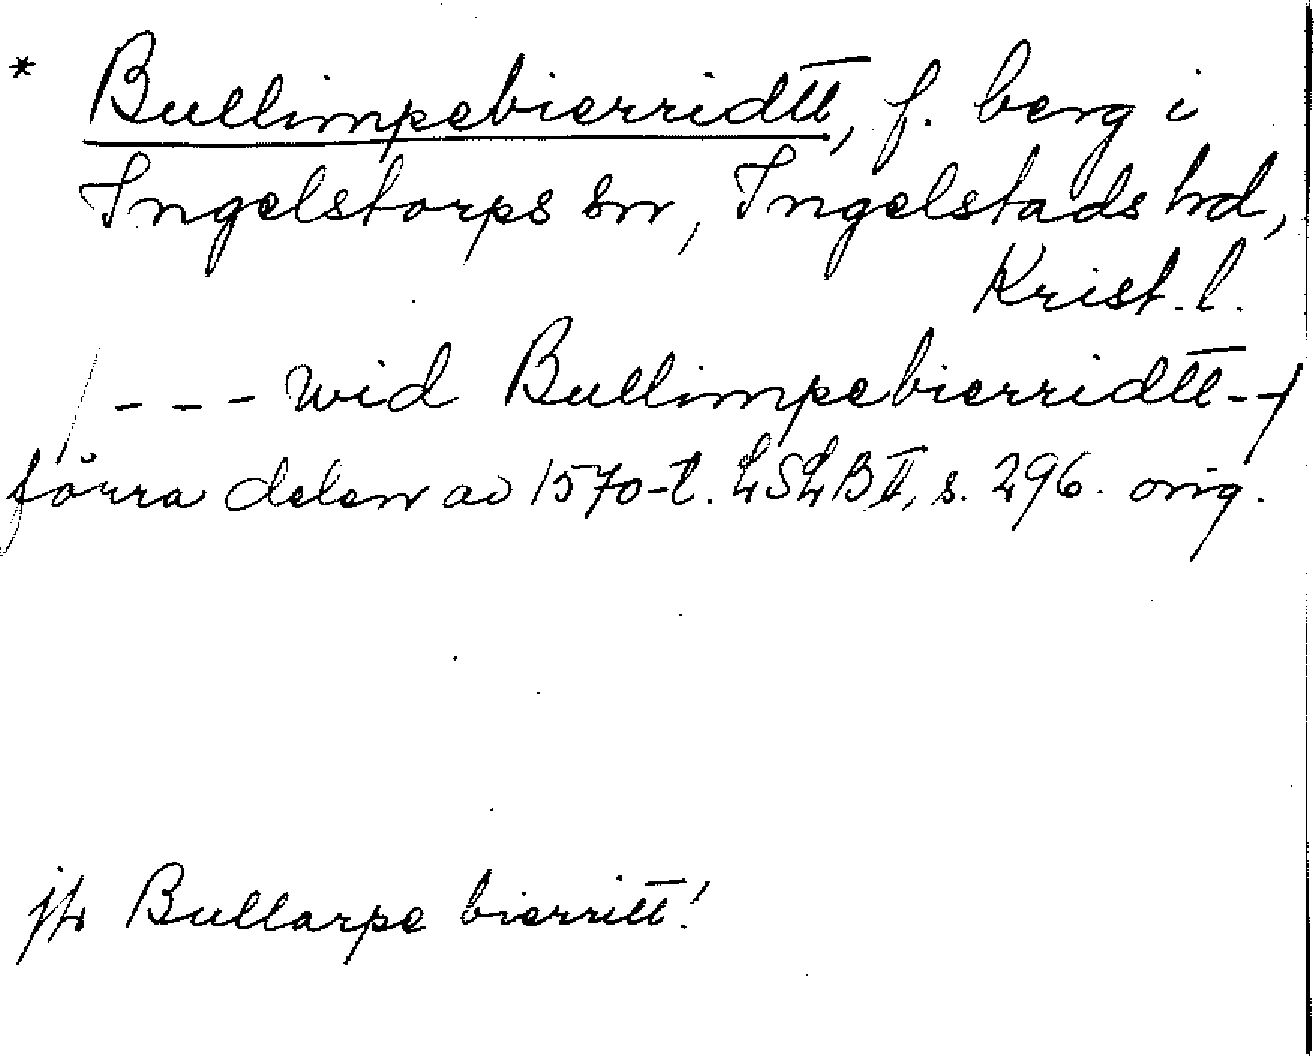 * Bullimpebierridtt, f. berg i
Ingelstorps sn, Ingelstads hd,
Krist. l.
--- wid Bullimpebierridtt--
förra delen av 1570-t. LSLB II, s. 296. orig.
jfr Bullarpe bierritt!